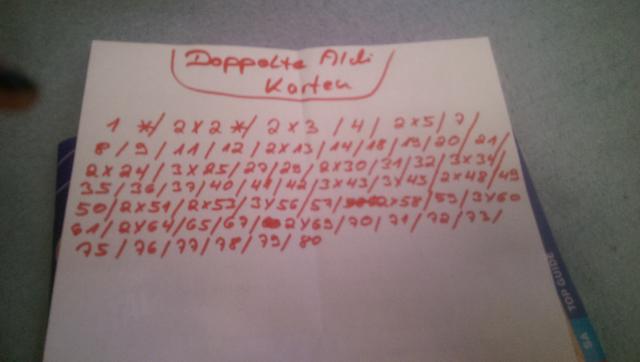 Doppelte Aldi
Karten
1 */ 2x2 */ 2x3 /4/ 2x5/ 7/
8/9/11/12/2x13/14/18/19/20/21/
2x24/3x25/27/29/2x30/31/32/3x34/
35/36/37/40/41/42/3x43/3x45/2x48/49
50/2x51/2x53/3x56/57/2x58/59/3x60
61/2x64/65/67/2x69/70/71/72/73/
75/76/77/78/79/80
TOP GUIDE
SA